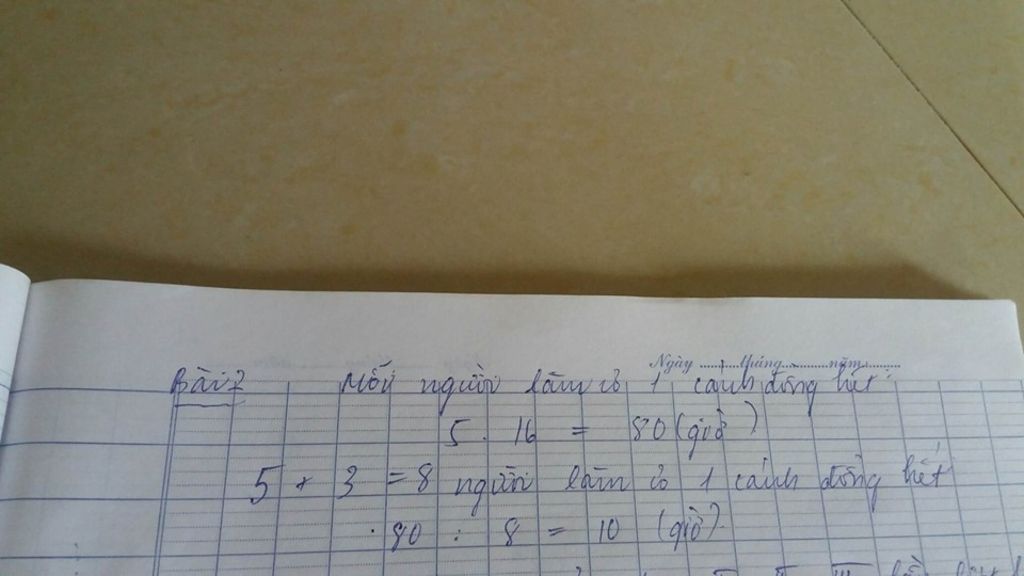 Ngày ...... tháng ...... năm ......
Bài 2 Mỗi người làm cỏ 1 cánh đồng hết:
5 . 16 = 80 (giờ)
5 + 3 = 8 người làm cỏ 1 cánh đồng hết
80 : 8 = 10 (giờ)